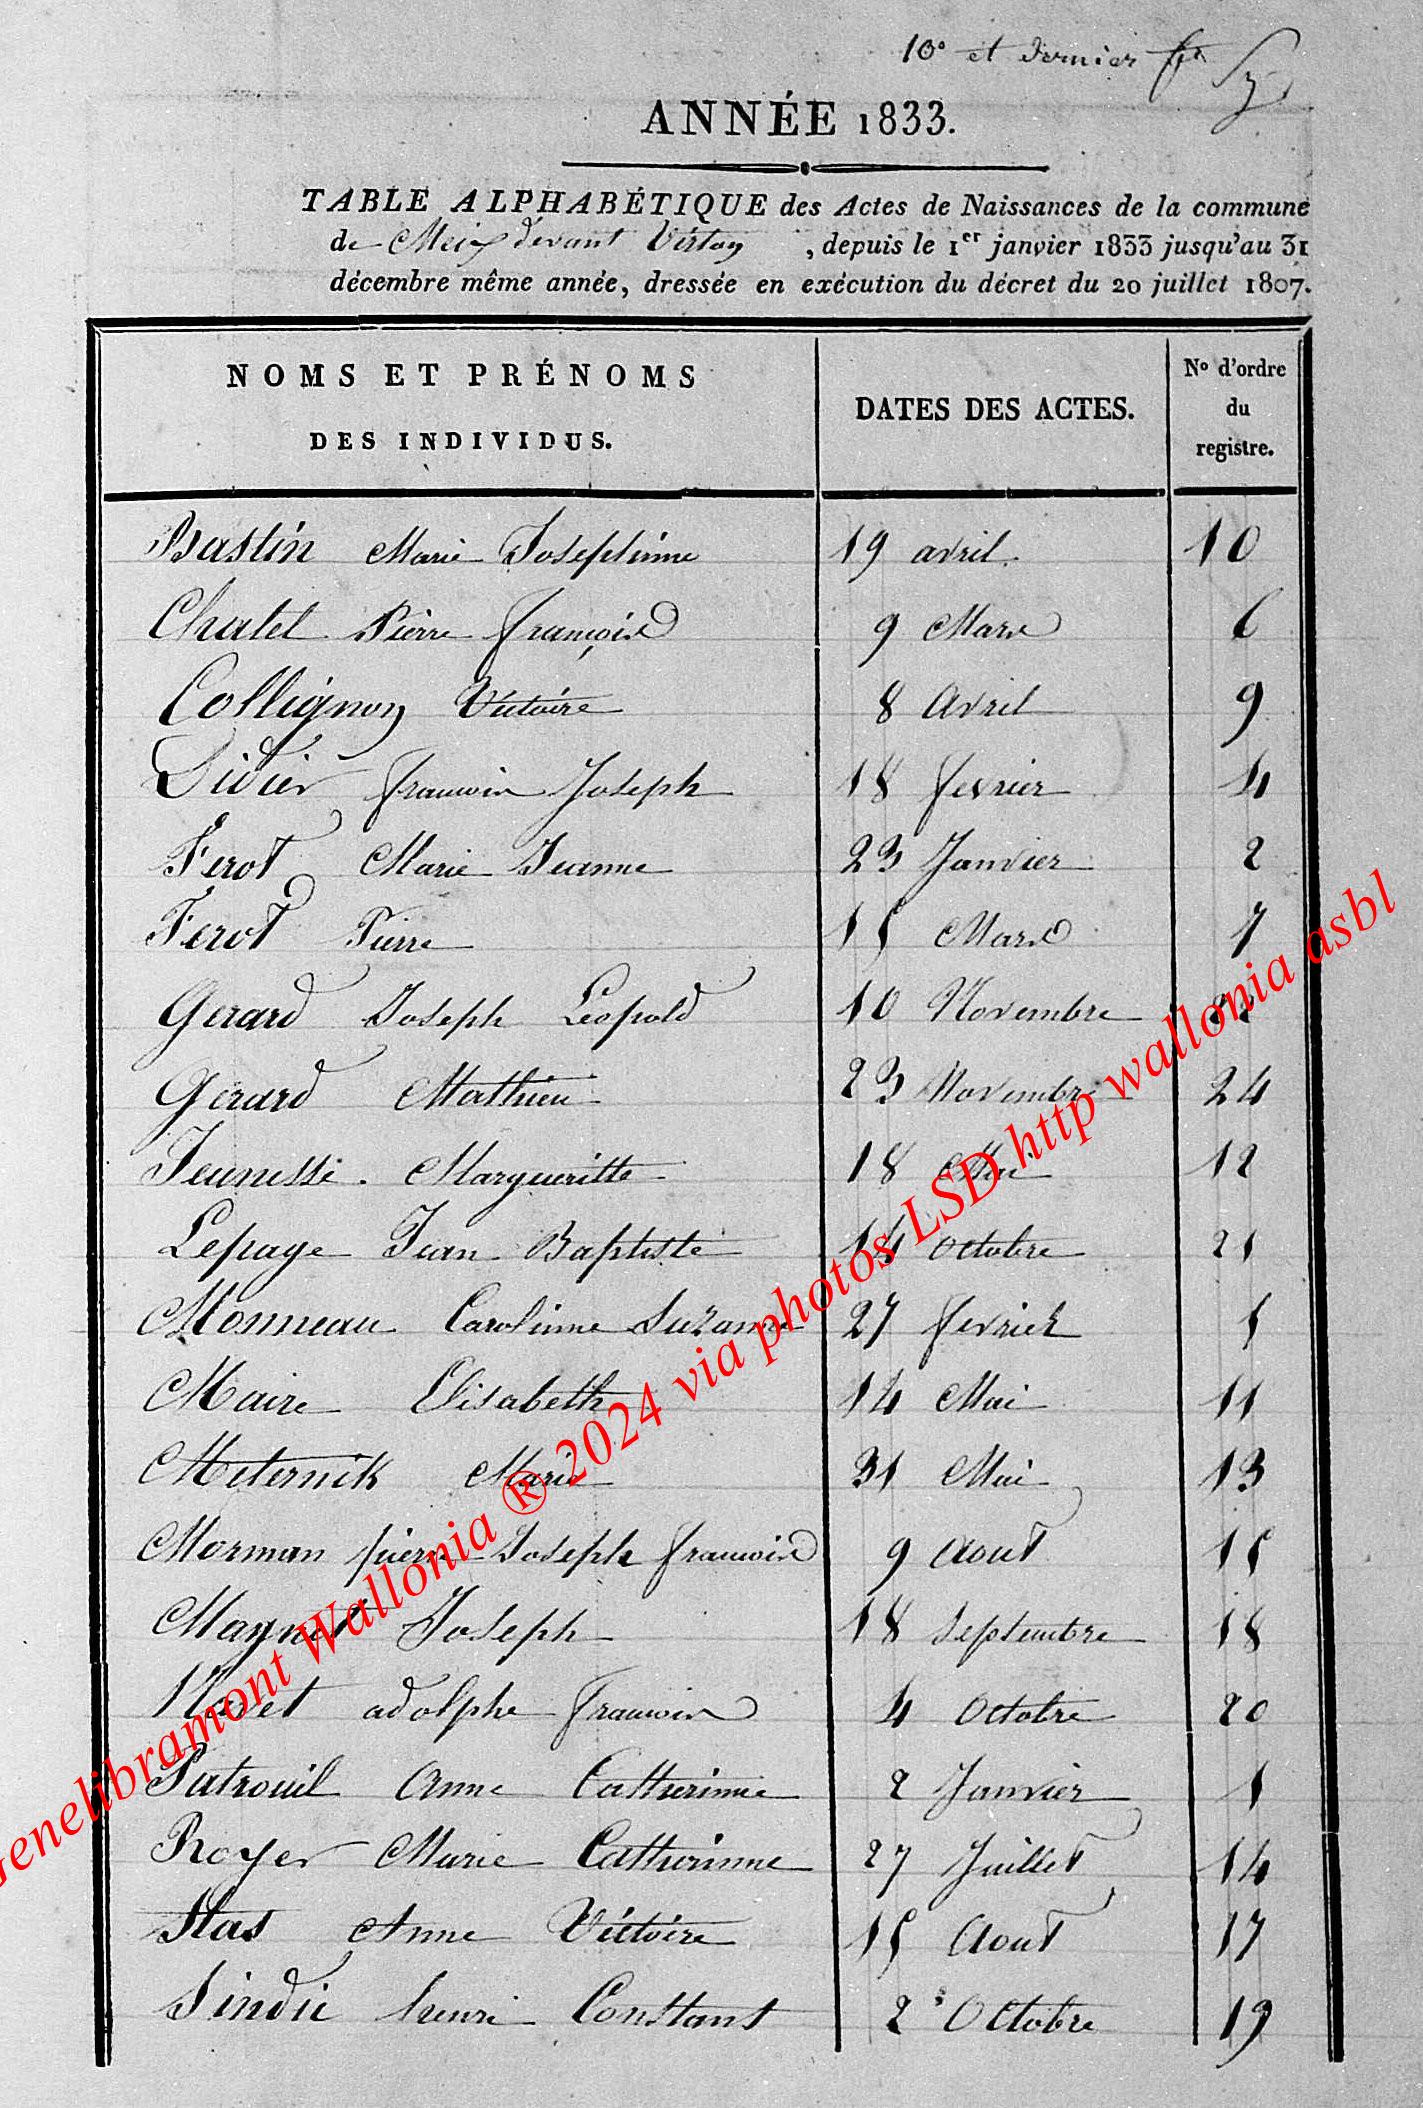 10e et dernier ft
ANNÉE 1833.
TABLE ALPHABÉTIQUE des Actes de Naissances de la commune
de Meix devant Virton, depuis le 1er janvier 1833 jusqu'au 31
décembre même année, dressée en exécution du décret du 20 juillet 1807.
NOMS ET PRÉNOMS
DES INDIVIDUS.
DATES DES ACTES.
No d'ordre
du
registre.
Bastin Marie Josephinne 19 avril. 10
Chatel Pierre françois 9 Mars 6
Collignon Victoire 8 Avril 9
Didier francois Joseph 18 fevrier 4
Ferot Marie Jeanne 23 Janvier 2
Ferot Pierre 15 Mars 7
Gerard Joseph Léopold 10 Novembre 22
Gerard Mathieu 23 Novembre 24
Jeunesse. Margueritte 18 Mai 12
Lepage Jean Baptiste 14 Octobre 21
Monneau Carolinne Suzanne 27 fevrier 5
Maire Elisabeth 14 Mai 11
Meternik Marie 31 Mai 13
Morman pierre Joseph francois 9 Aout 15
Magnet Joseph 18 Septembre 18
Navet adolphe francois 4 Octobre 20
Patrouil Anne Catherinne 2 Janvier 1
Royer Marie Catherinne 27 Juillet 14
Stas Anne Victoire 15 Aout 17
Sindic henri Constant 2 Octobre 19
Genelibramont Wallonia ® 2024 via photos LSD http wallonia asbl